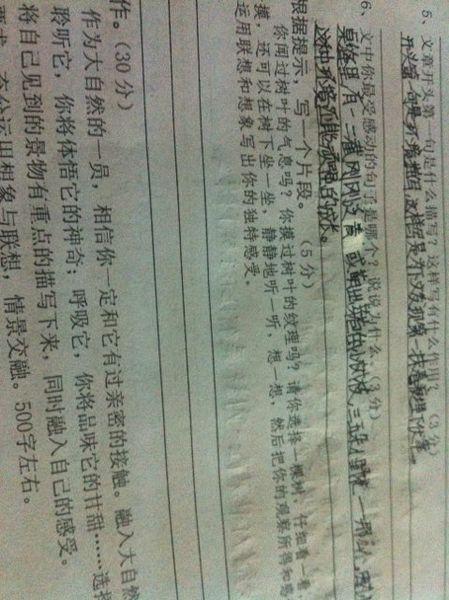 5、文章开头第一句是什么描写？这样写有什么作用？（3 分）
开头第一句是环境描写 这样写是为了
6、文中你最受感动的句子是哪个？说说为什么。（3 分）
里有一二
根据提示，写一个片段。（5 分）
你闻过树叶的气息吗？你摸过树叶的纹理吗？请你选择一棵树，仔细看一看，
摸，还可以在树下坐一坐，静静地听一听，想一想，然后把你的观察所得和感
运用联想和想象写出你的独特感受。
作。（30 分）
作为大自然的一员，相信你一定和它有过亲密的接触。融入大自然
聆听它，你将体悟它的神奇；呼吸它，你将品味它的甘甜……选择
将自己见到的景物有重点的描写下来，同时融入自己的感受。
要求：充分运用想象与联想，情景交融。500字左右。